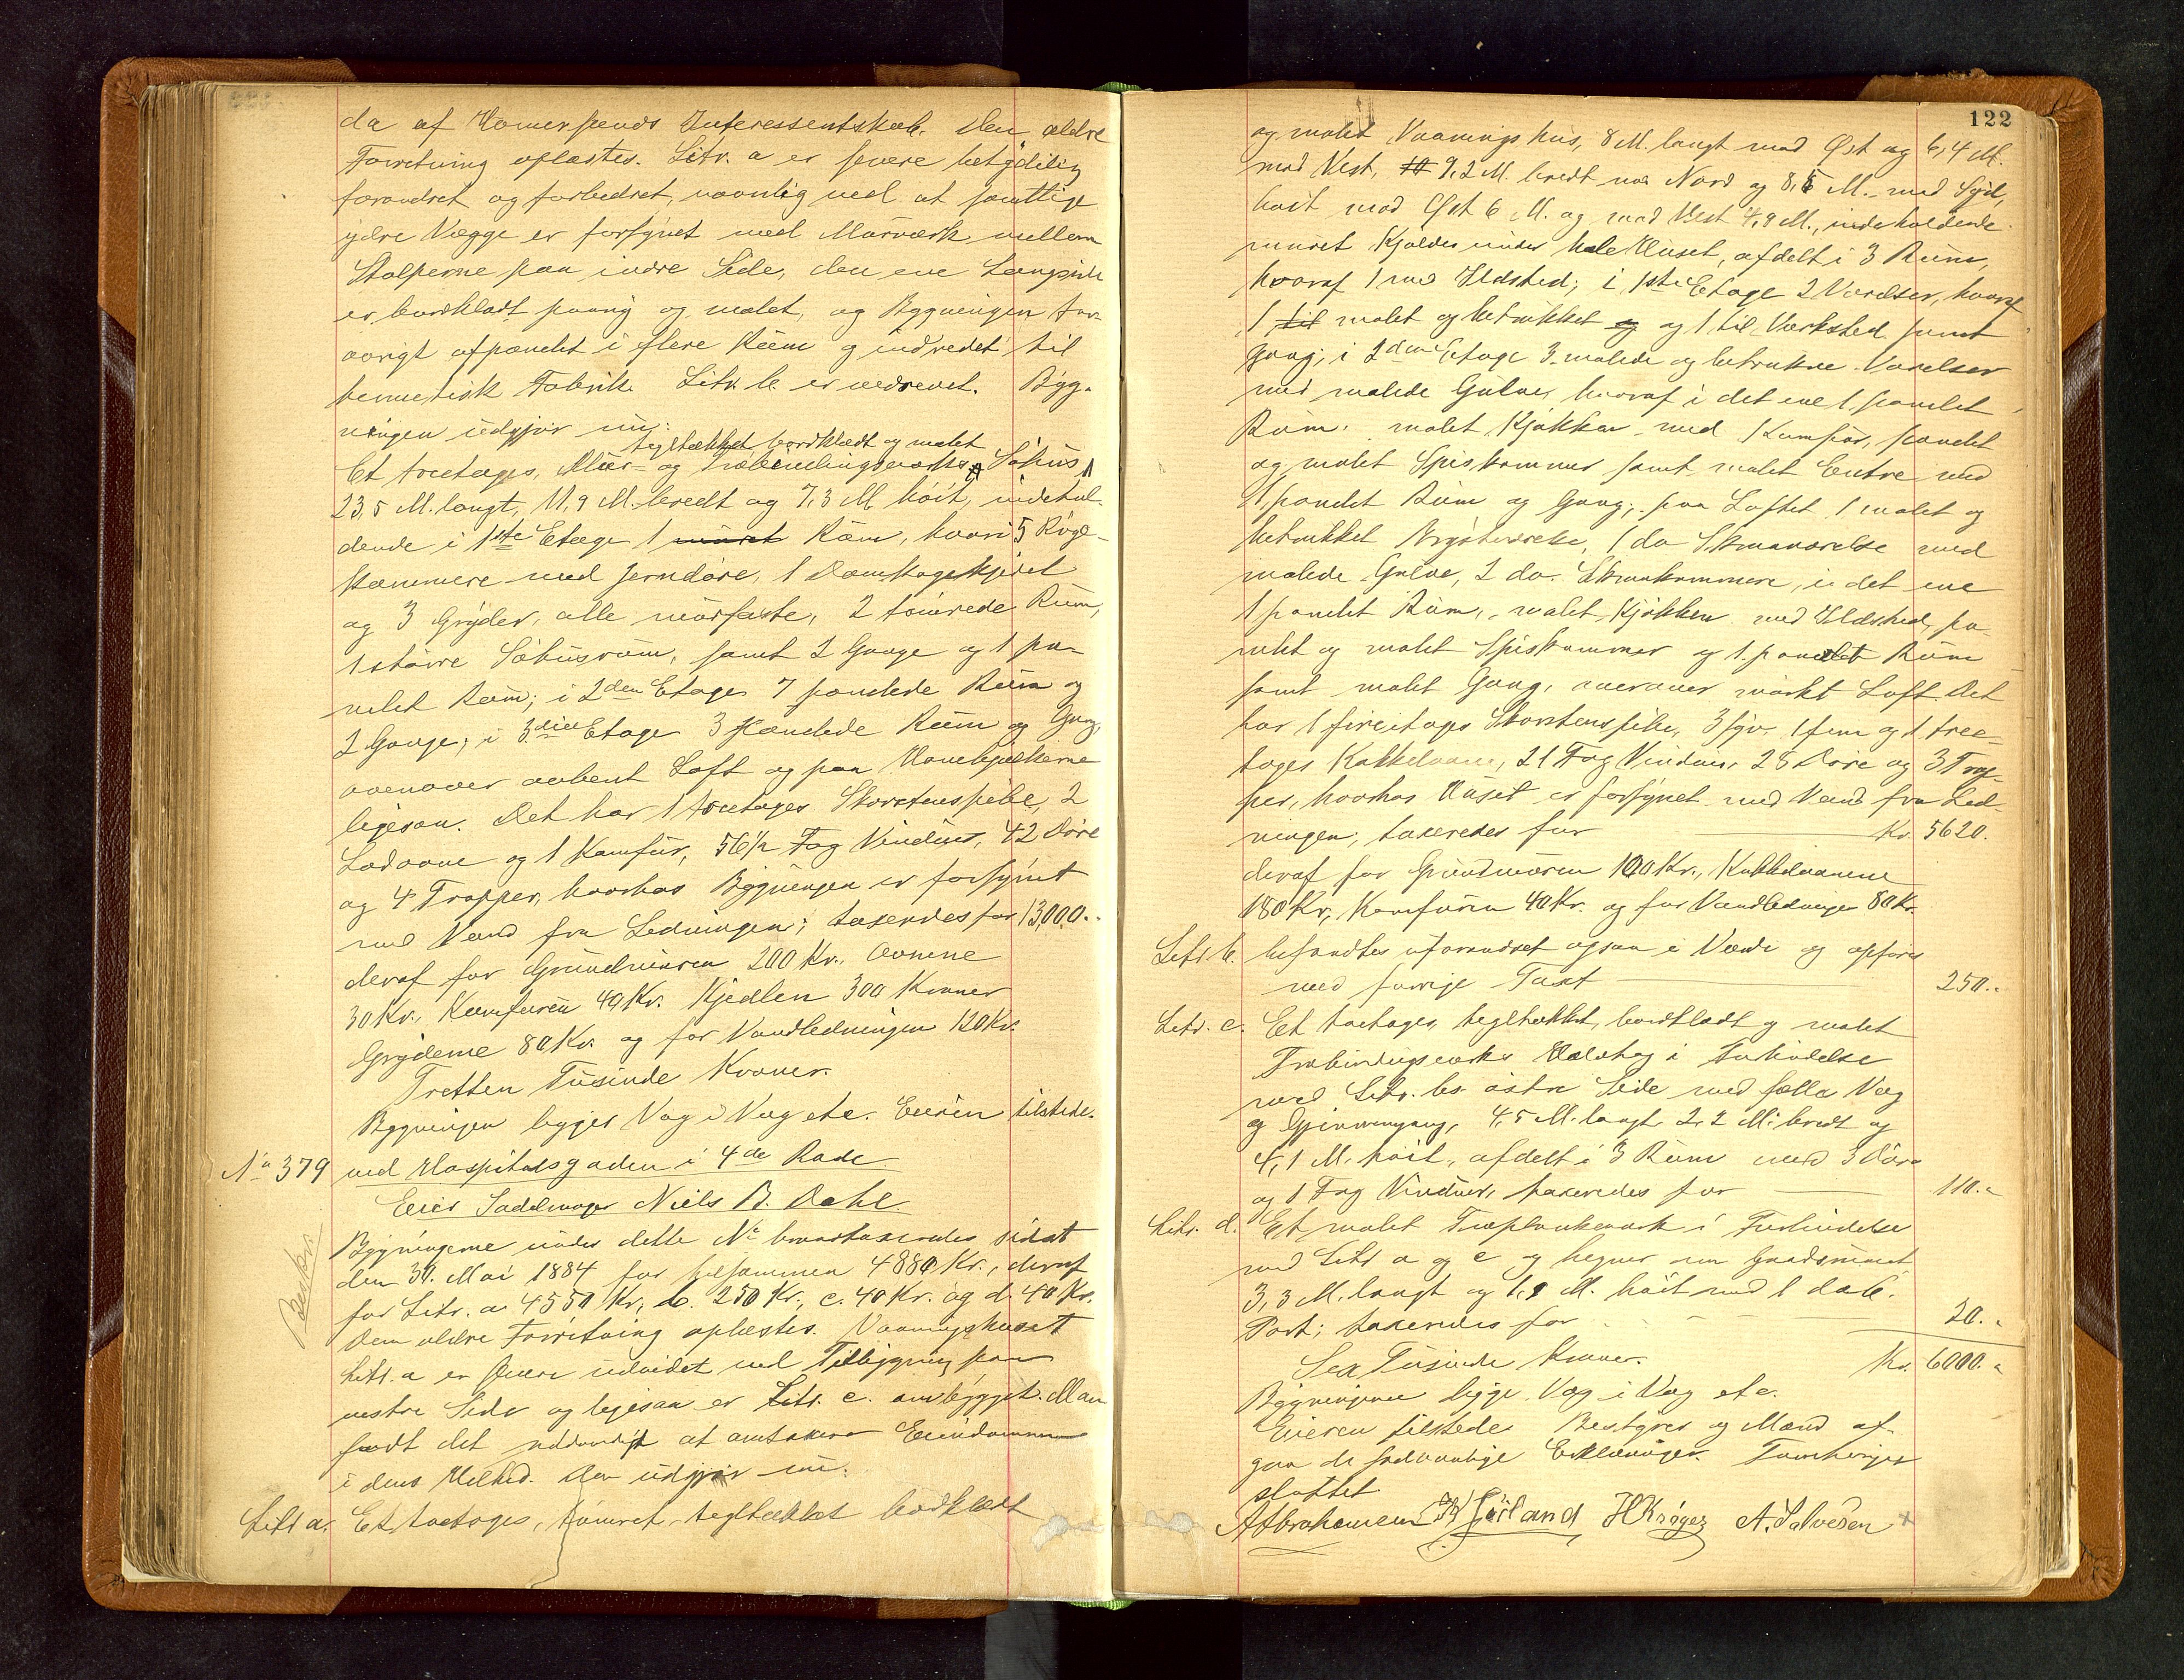 da af Hommersands Interessentskab. Den ældre
Forretning oplæstes. Litr. a er senere betydelig
forandret og forbedret, navnlig ved at samtlige
ydre Vægge er forsynet med Murværk mellem
Stolperne paa indre Side, den ene Langside
er bordklædt paany og malet, og Bygningen for-
øvrigt afpanelet i flere Rum og indredet til
hermetisk Fabrik. Litr. b. er nedrevet. Byg-
ningen udgjør nu:
tegltækket, bordklædt og malet
Et treetages, Mur- og Træbindingsværks Søhus
23,5 M. langt, 11,9 M. bredt og 7,3 M. høit, indehol-
dende i 1ste Etage 1 muret Rum, hvori 5 Røge-
kammere med Jerndøre, 1 Dampkogekjedel
og 3 Gryder, alle murfaste, 2 tømrede Rum,
1 større Søhusrum, samt 2 Gange og 1 pa-
nelet Rum; i 2den Etage 7 panelede Rum og
2 Gange; i 3die Etage 3 panelede Rum og Gang,
ovenover aabent Loft og paa Hanebjelkerne
ligesaa. Det har 1 treetages Skorstenspibe, 2
Ladovne og 1 Komfur, 56½ Fag Vinduer, 42 Døre
og 4 Trapper, hvorhos Bygningen er forsynet
med Vand fra Ledningen; taxeredes for 13,000.-
deraf for Grundmuren 200 Kr., Ovnene
30 Kr., Komfuren 40 Kr. Kjedlen 300 Kroner
Gryderne 80 Kr. og for Vandledningen 120 Kr.
Tretten Tusinde Kroner.
Bygningen ligger Væg i Væg etc. Eieren tilstede.
No 379 ved Hospitalsgaden i 4de Rode
Eier Sadelmager Niels B. Dahl.
Bygningerne under dette No brandtaxeredes sidst
den 30. Mai 1884 for tilsammen 4880 Kr., deraf
for Litr. a. 4550 Kr., b. 250 Kr., c. 40 Kr. og d. 40 Kr.
Den ældre Forretning oplæstes. Vaaningshuset
Litr. a er senere udvidet ved Tilbygning paa
vestre Side og ligesaa er Litr. c. ombygget. Man
fandt det nødvendigt at omtaxere Eiendommen
i dens Helhed. Den udgjør nu:
Litr a. Et toetages, tømret, tegltækket bordklædt
122
og malet Vaaningshus, 8 M. langt mod Øst og 6,4 M.
mod Vest, 9,2 M. bredt mod Nord og 8,5 M. mod Syd,
høit mod Øst 6 M. og mod Vest 4,9 M., indeholdende
muret Kjælder under hele Huset, afdelt i 3 Rum,
hvoraf 1 med Ildsted; i 1ste Etage 2 Værelser, hvoraf
1 til malet og betrukket og og 1 til Værksted samt
Gang; i 2den Etage 3 malede og betrukne Værelser
med malede Gulve, hvoraf i det ene 1 panelet
Rum, malet Kjøkken med Komfur, panelet
og malet Spiskammer samt malet Entre med
1 panelet Rum og Gang; paa Loftet 1 malet og
betrukket Kvistværelse, 1 do Skraaværelse med
malede Gulve, 2 do. Skraakammere, i det ene
1 panelet Rum, malet Kjøkken med Ildsted, pa-
nelet og malet Spiskammer og 1 panelet Rum
samt malet Gang, ovenover mørkt Loft. Det
har 1 fireetages Skorstenspibe, 3 fyr. 1 fem og 1 tree-
tages Kakkelovne, 21 Fag Vinduer, 25 Døre og 3 Trap-
per, hvorhos Huset er forsynet med Vand fra Led-
ningen; taxeredes for Kr. 5620.
deraf for Grundmuren 100 Kr., Kakkelovnene
180 Kr., Komfuren 40 Kr. og for Vandledningen 80 Kr.
Litr. b. befandtes uforandret ogsaa i Værdi og opføres
med forrige Taxt 250.-
Litr. c. Et toetages, tegltækket, bordklædt og malet
Træbindingsværks Udehus i Forbindelse
med Litr. bs østre Side med fælles Væg
og Gjennemgang, 4,5 M. langt 2,2 M. bredt og
4,1 M. høit, afdelt i 3 Rum med 3 Døre
og 1 Fag Vinduer, taxeredes for 110.-
Litr. d. Et malet Træplankeværk i Forbindelse
med Litr a og c og hegner om Gaardsrummet
3,3 M. langt og 1,9 M. høit med 1 dob.
Port; taxeredes for 20.-
Sex Tusinde Kroner. Kr. 6000.-
Bygningerne ligge Væg i Væg etc.
Eieren tilstede. Bestyrer og Mænd af-
gav de sædvanlige Erklæringer. Forretningen
sluttet.
A Abrahamsen Hj Gjørland HKrøger A. Salvesen